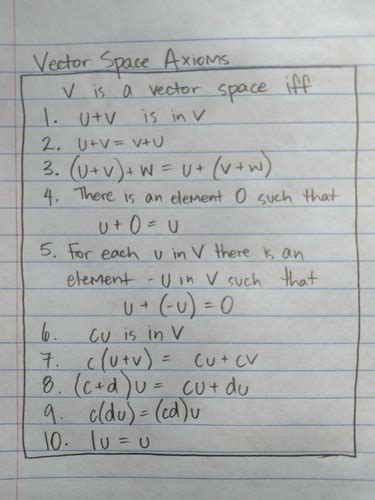 Vector Space Axioms
V is a vector space iff
1. u+v is in V
2. u+v = v+u
3. (u+v)+w = u+(v+w)
4. There is an element 0 such that
u+0=u
5. For each u in V there is an
element -u in V such that
u+(-u)=0
6. cu is in V
7. c(u+v) = cu+cv
8. (c+d)u = cu+du
9. c(du)=(cd)u
10. 1u = u